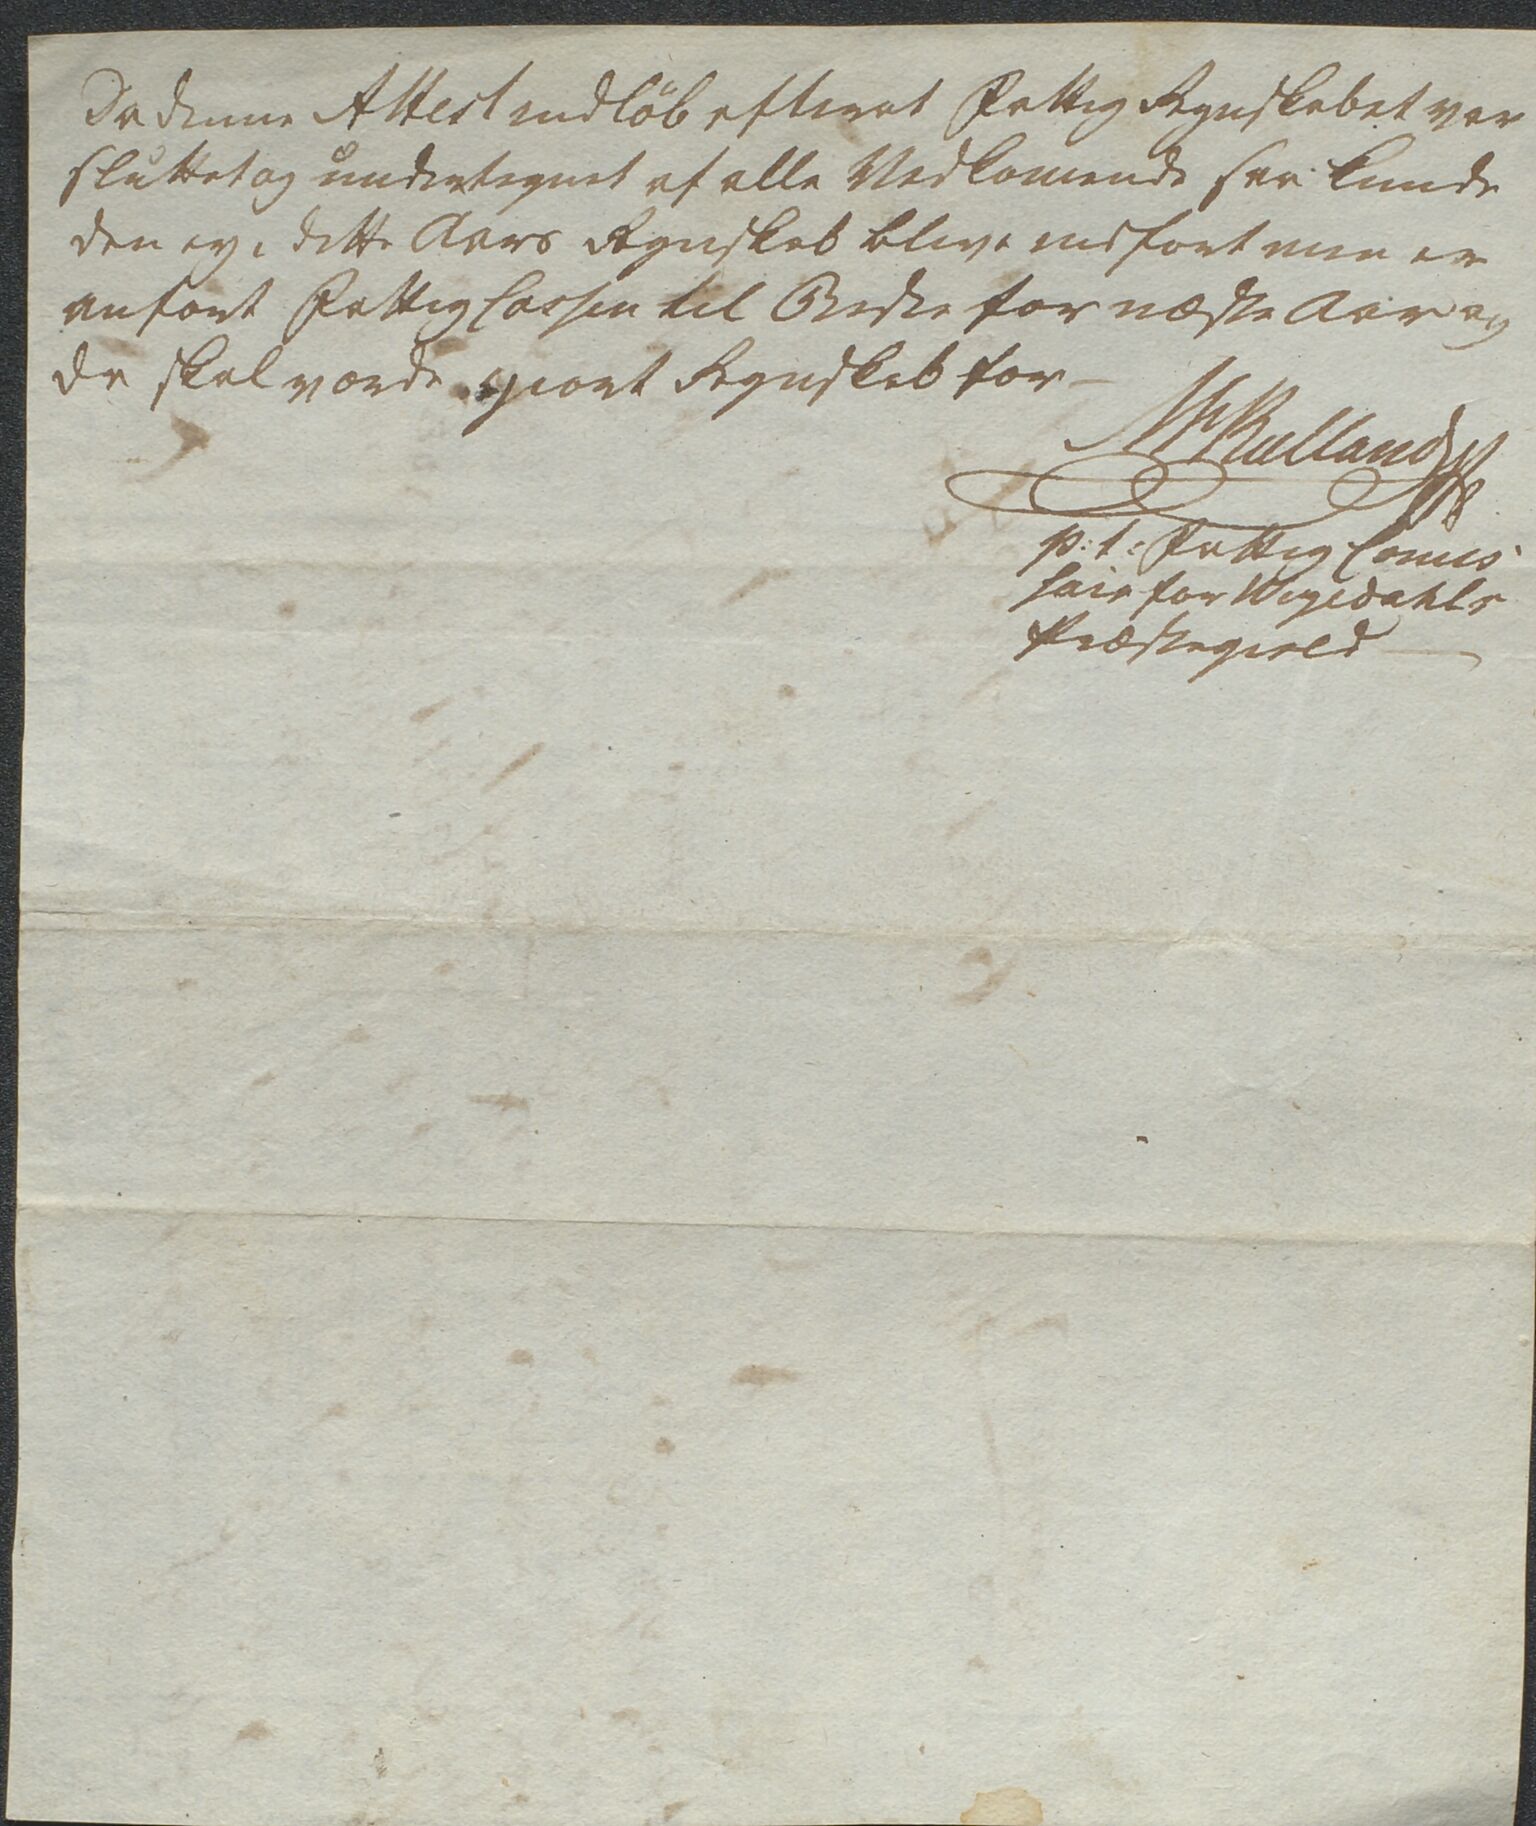 Da denne Attest indlöb efterat Fattig Regnskabet var
sluttet og undertegnet af alle Vedkomende saa kunde
den ey i dette Aars Regnskab blive indført men er
anført Fattig Cassen til Beste for næste Aar og
da skal vorde giort Regnskab for –
Rulland
p: t: Fattig Comis
sair for Wigedahls
Præstegield —